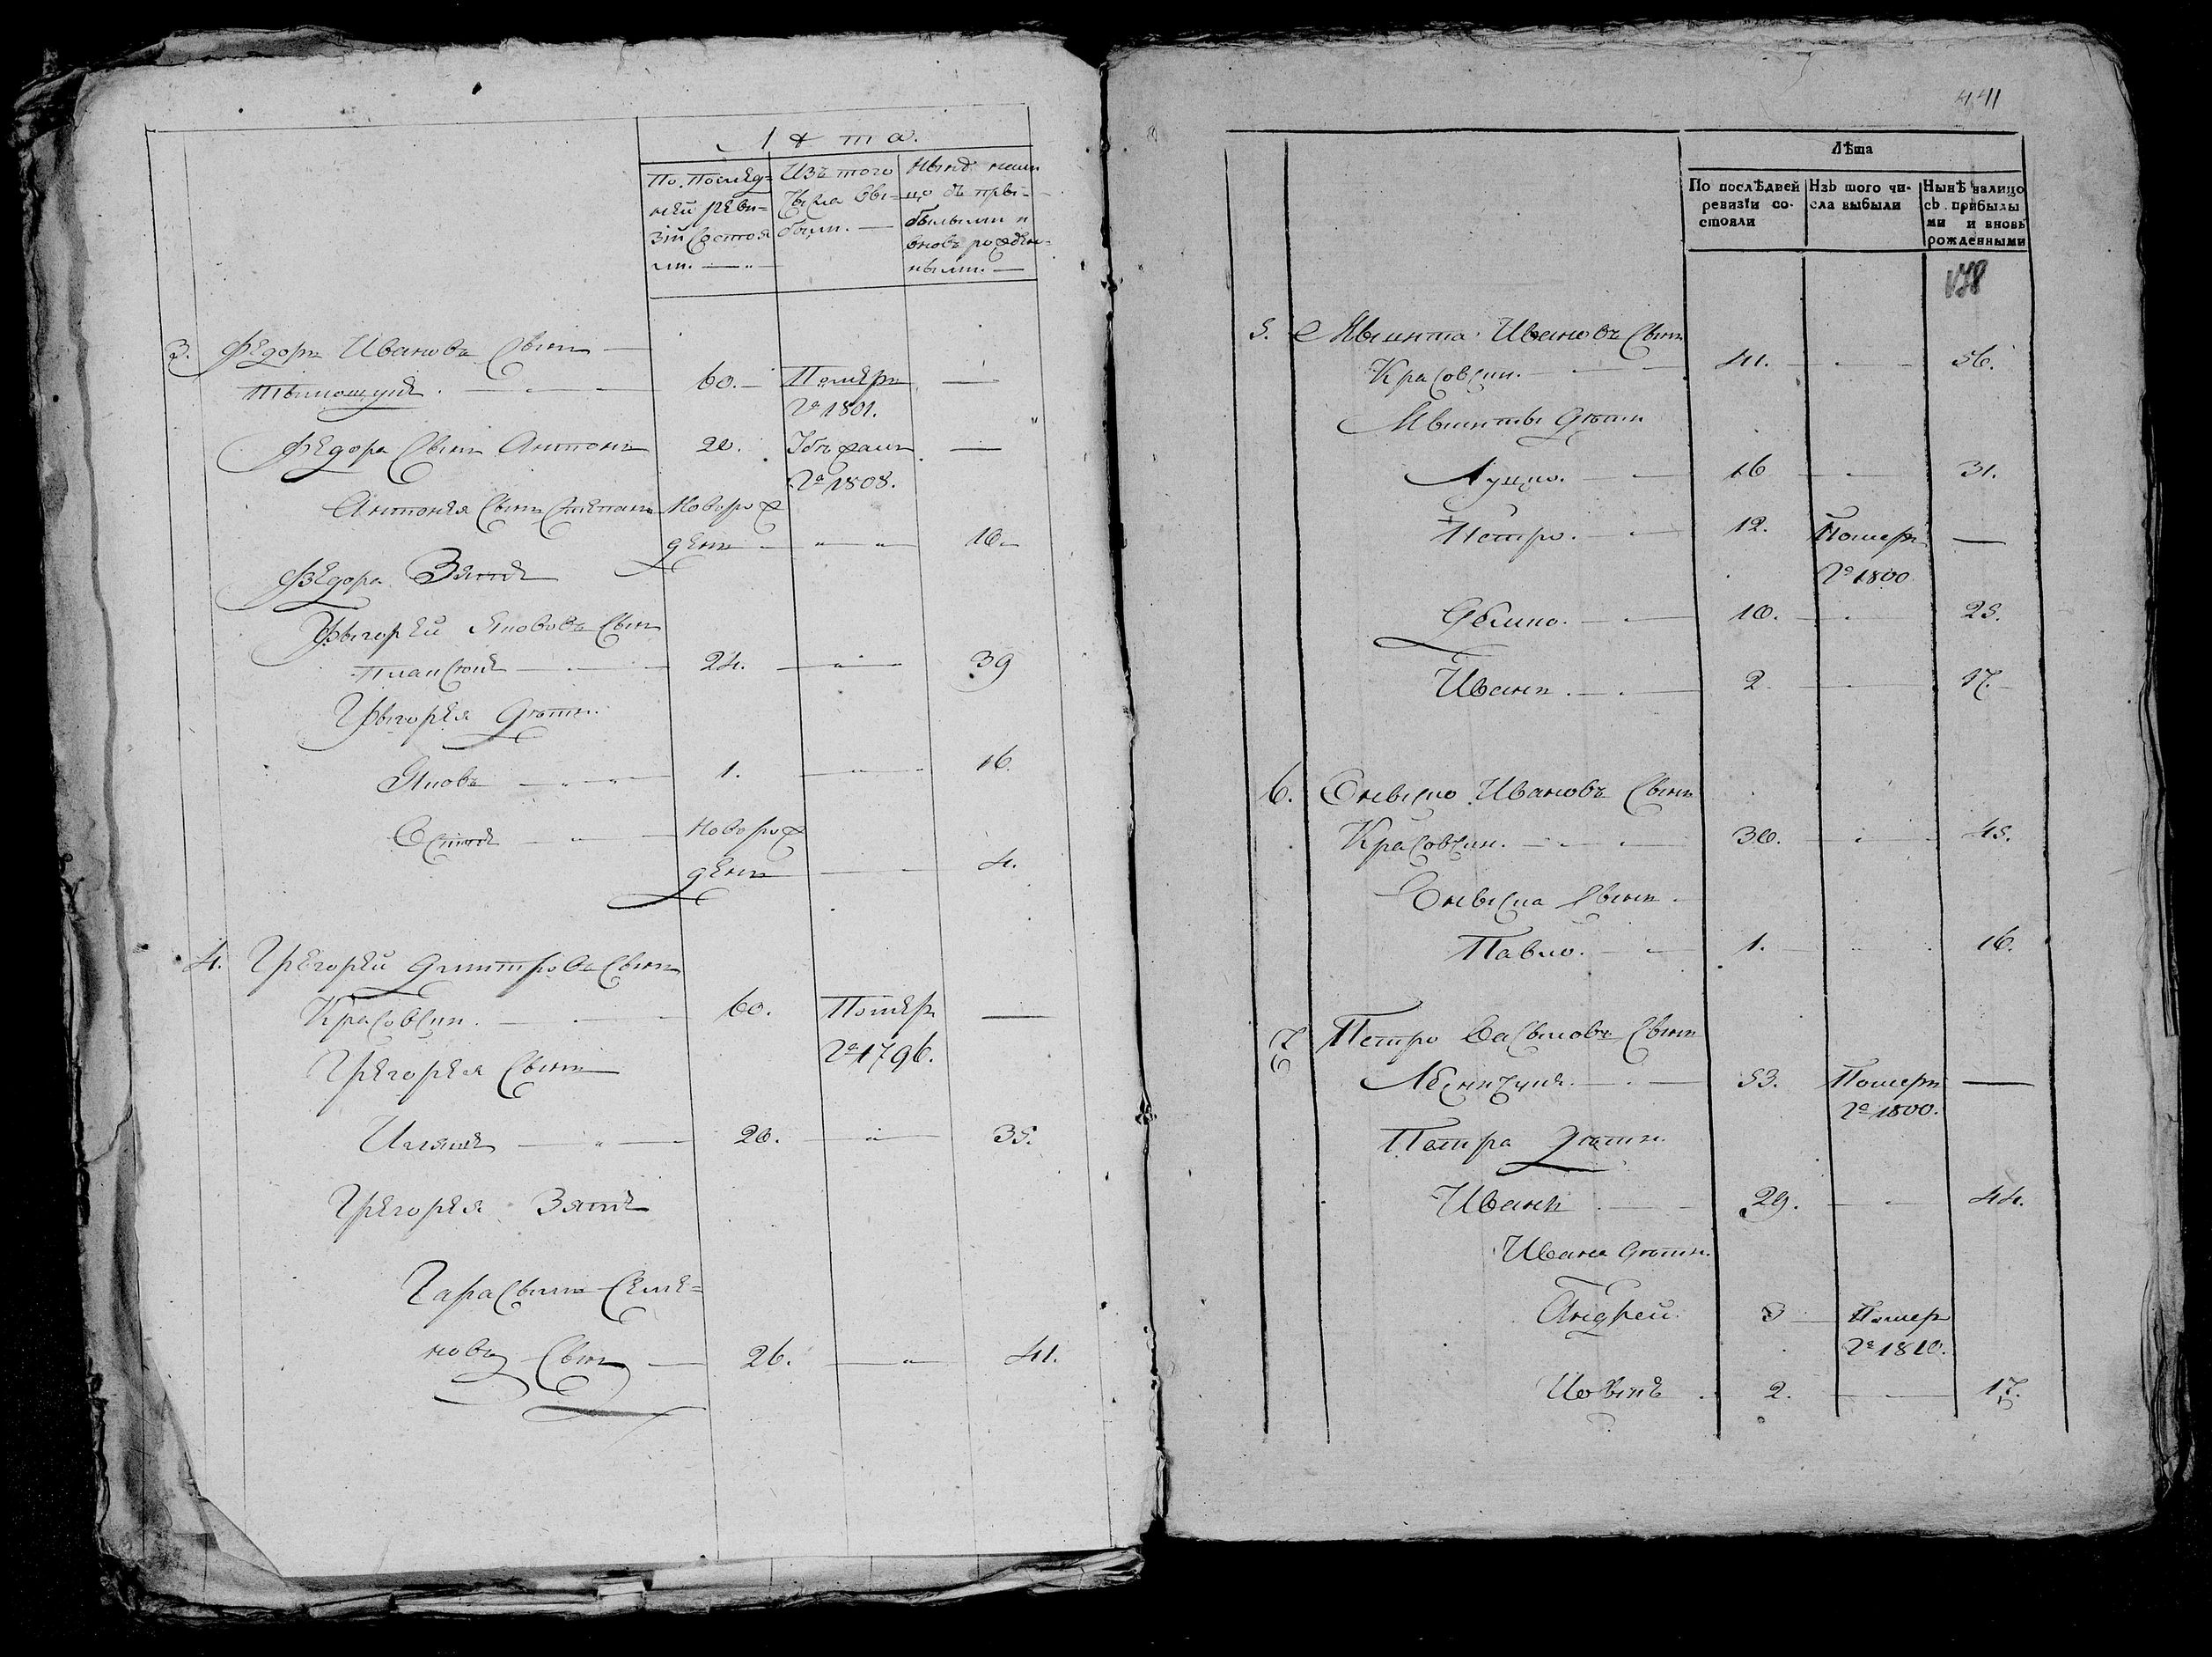 Лѣта.
По послѣд=
ней реви=
зіи состоя
ли.
Изъ того
числа вы=
были.
Нынѣ нали
цо съ при=
былыми и
вновъ рожден=
ными.
3. Федоръ Ивановъ Сынъ
60. Померъ
1801.
Федора Сынъ Антонъ 20.
1808.
Антонея Сынъ Степанъ Новорож
денъ 10
Федора Зять
Грыгорей Яковъ Сынъ
24. 39
Грыгорея дѣти.
Яковъ 1. 16.
Новорож
денъ 4.
4. Грегорей Дмитровъ Сынъ
Красовскій. 60. Померъ
1796.
Грегорея Сынъ
Иляшъ 20. 35.
Грегорея Зять
Гарасымъ Семе=
новъ Сынъ 26. 41.
441
Лѣта
По послѣдней
ревизіи со-
стояли
Изъ того чи-
сла выбыли
Нынѣ налицо
съ прибылы
ми и вновь
рожденными
5. Мыкита Ивановъ Сынъ
Красовскій. 41. 56.
Мыкиты дѣти
Луцко. 16 31.
Петро. 12. Померъ
1800
10. 25.
Иванъ. 2. 17.
6. Ивановъ Сынъ
Красовскій. 30. 45.
Сынъ
Павло. 1. 16.
7 Петро Васылювъ Сынъ
53. Померъ
1800.
Петра дѣти.
Иванъ 29. 44.
Ивана дѣти.
Андрей. 3 Померъ
1810.
2. 17.